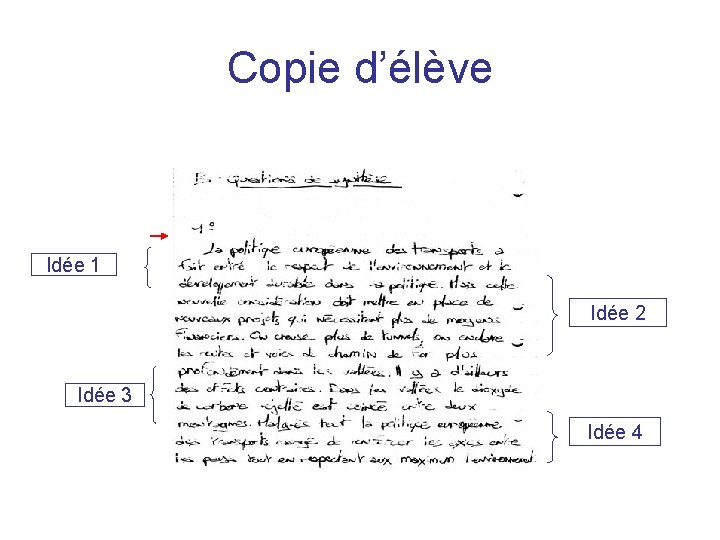 Copie d’élève
B - Questions de synthèse
1°
La politique européenne des transports a
Idée 1
fait entré le respect de l'environnement et le
développement durable dans sa politique. Mais cette
nouvelle considération doit mettre en place de
Idée 2
nouveaux projets qui nécessitent plus de moyens
financiers. On creuse plus de tunnels, on
les routes et voies de chemin de fer plus
profondément dans les vallées. Il y a d'ailleurs
Idée 3
des effets contraires. Dans les vallées le dioxyde
de carbone rejetté est coincé entre deux
montagnes. Malgrés tout la politique européenne
Idée 4
des transports de renforcer les axes entre
les pays tout en respectant aux maximum l'environnement